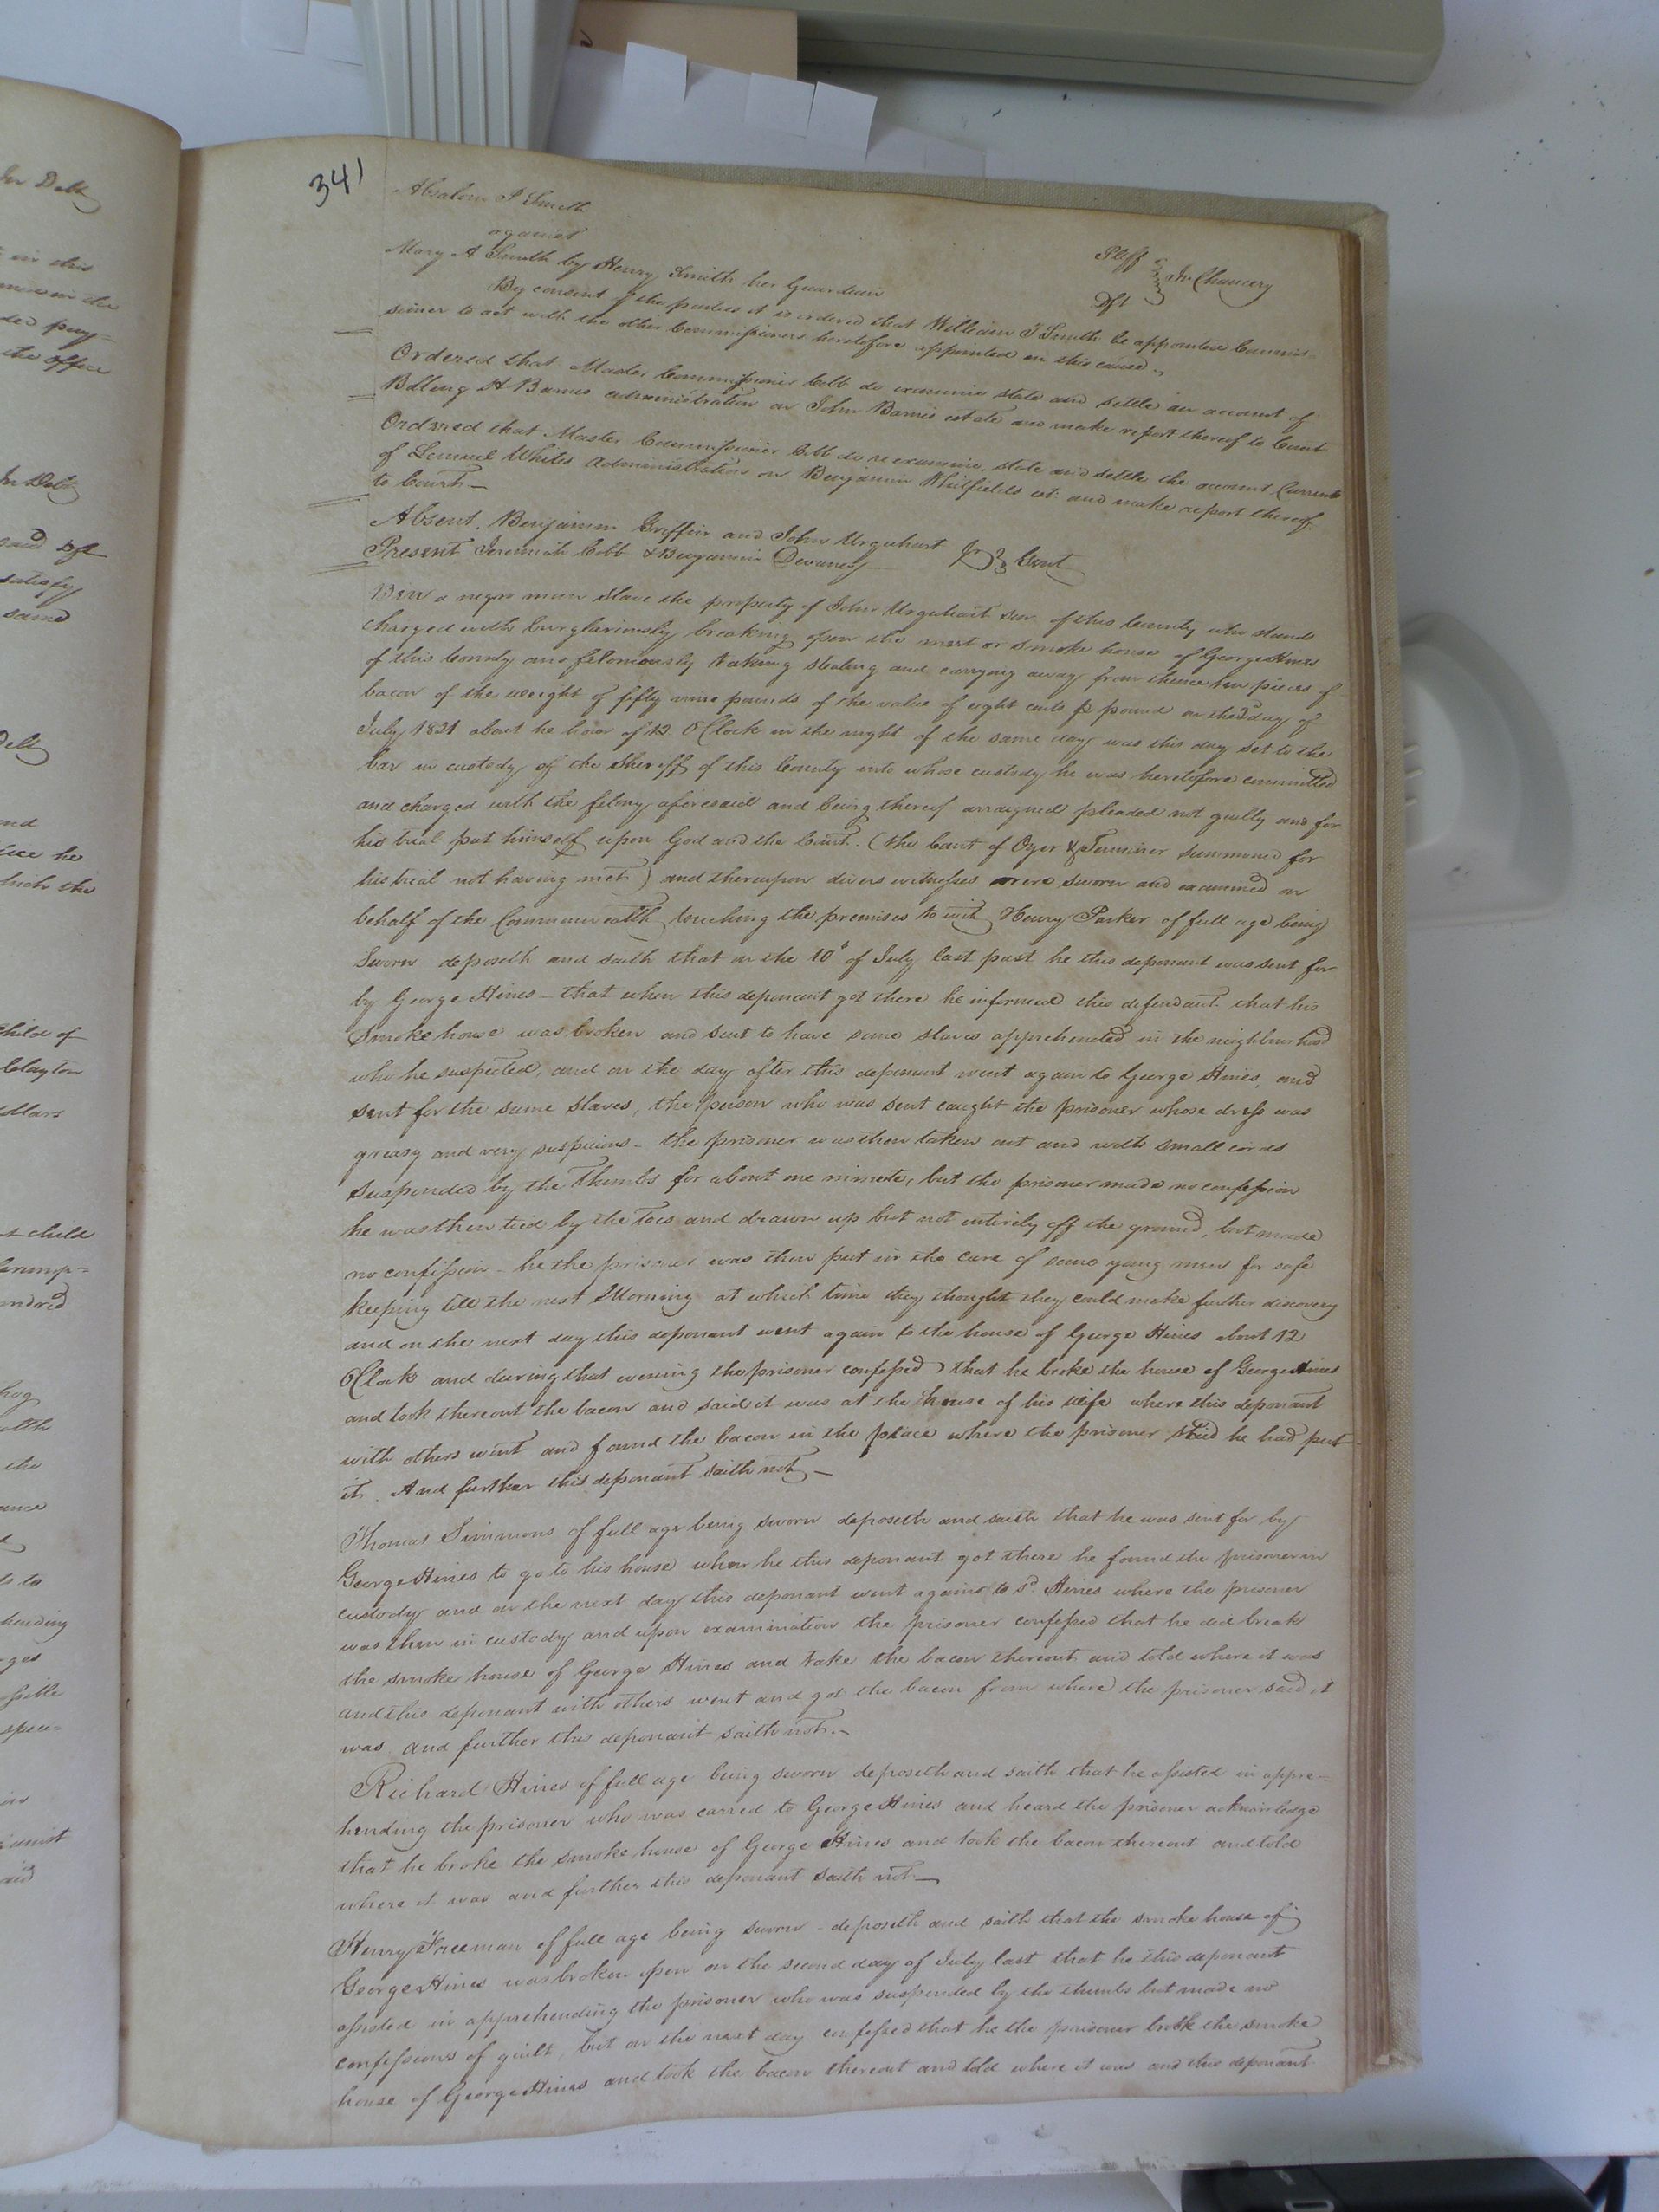 341
Absalom P Smith Pltff
against In Chancery
Mary A Smith by Henry Smith her Guardian Dft
By consent of the parties it is ordered that William J Smith be appointed Commis-
sioner to act with the other Commissioners heretofore appointed in this cause.
Ordered that Master Commissioner Cobb do examine state and settle an account of
Bolling H Barnes administration on John Barnes estate and make report thereof to Court
Ordered that Master Commissioner Cobb do reexamine, state and settle the account Current
of Lemuel Whites Administration on Benjamin Whitfields est and make report thereof
to Court —
Absent, Benjamin Griffin and John Urquhart
Present Jeremiah Cobb & Benjamin Devaney Gent
Ben a negro man slave the property of John Urquhart Senr. of this County who stands
charged with burglariously breaking open the meat or smoke house of George Hines
of this County and feloniously taking stealing and carrying away from thence ten pieces of
bacon of the weight of fifty nine pounds of the value of eight cents pr pound on the 2d day of
July 1821 about he hour of 12 OClock in the night of the same day was this day set to the
bar in custody of the Sheriff of this County into whose custody he was heretofore committed
and charged with the felony aforesaid and being thereof arraigned pleaded not guilty and for
his trial put himself upon God and the Court. (the Court of Oyer & Terminer summoned for
his trial not having met) and thereupon divers witnesses were sworn and examined on
behalf of the Commonwealth touching the premises to wit Henry Parker of full age being
Sworn deposeth and saith that on the 10th of July last past he this deponant was sent for
by George Hines — that when this deponant got there he informed this defendant that his
Smoke house was broken and sent to have some slaves apprehended in the neighbourhood
who he suspected, and on the day after this deponant went again to George Hines, and
sent for the same slaves, the person who was sent caught the prisoner whose dress was
greasy and very suspicious - the prisoner was then taken out and with small cords
suspended by the Thumbs for about one minute, but the prisoner made no confession
he was then tied by the Toes and drawn up but not entirely off the ground, but made
no confission - he the prisoner was then put in the care of some young men for safe
keeping till the next Morning at which time they thought they could make further discovery
and on the next day this deponant went again to the house of George Hines about 12
OClock and during that evening the prisoner confessed that he broke the house of George Hines
and took thereout the bacon and said it was at the house of his wife where this deponant
with others went and found the bacon in the place where the prisoner said he had put
it. And further this deponant saith not —
Thomas Simmons of full age being sworn deposeth and saith that he was sent for by
George Hines to go to his house when he this deponant got there he found the prisoner in
custody and on the next day this deponant went again to sd. Hines where the prisoner
was then in custody and upon examination the prisoner confessed that he did break
the smoke house of George Hines and take the bacon thereout and told where it was
and this deponant with others went and got the bacon from where the prisoner said it
was and further this deponant saith not.—
Richard Hines of full age being sworn deposeth and saith that he assisted in appre=
hending the prisoner who was carred to George Hines and heard the prisoner acknowledge
that he broke the smoke house of George Hines and took the bacon thereout and told
where it was and further this deponant saith not —
Henry Freeman of full age being sworn - deposeth and saith that the smoke house of
George Hines was broken open on the second day of July last that he this deponant
assisted in apprehending the prisoner who was suspended by the thumbs but made no
confessions of guilt, but on the next day confessed that he the prisoner broke the smoke
house of George Hines and took the bacon thereout and told where it was and this deponant